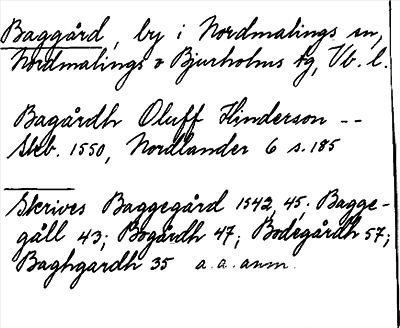 Baggård, by i Nordmalings sn,
Nordmalings o Bjurholms tg, Vb. l.
Bagårdh Oluff Hinderson --
Skb. 1550, Nordlander 6 s. 185
Skrives Baggegård 1542, 45; Bagge-
gåll 43; Bogårdh 47; Bodegårdh 57;
Baghgardh 35 a. a. anm.